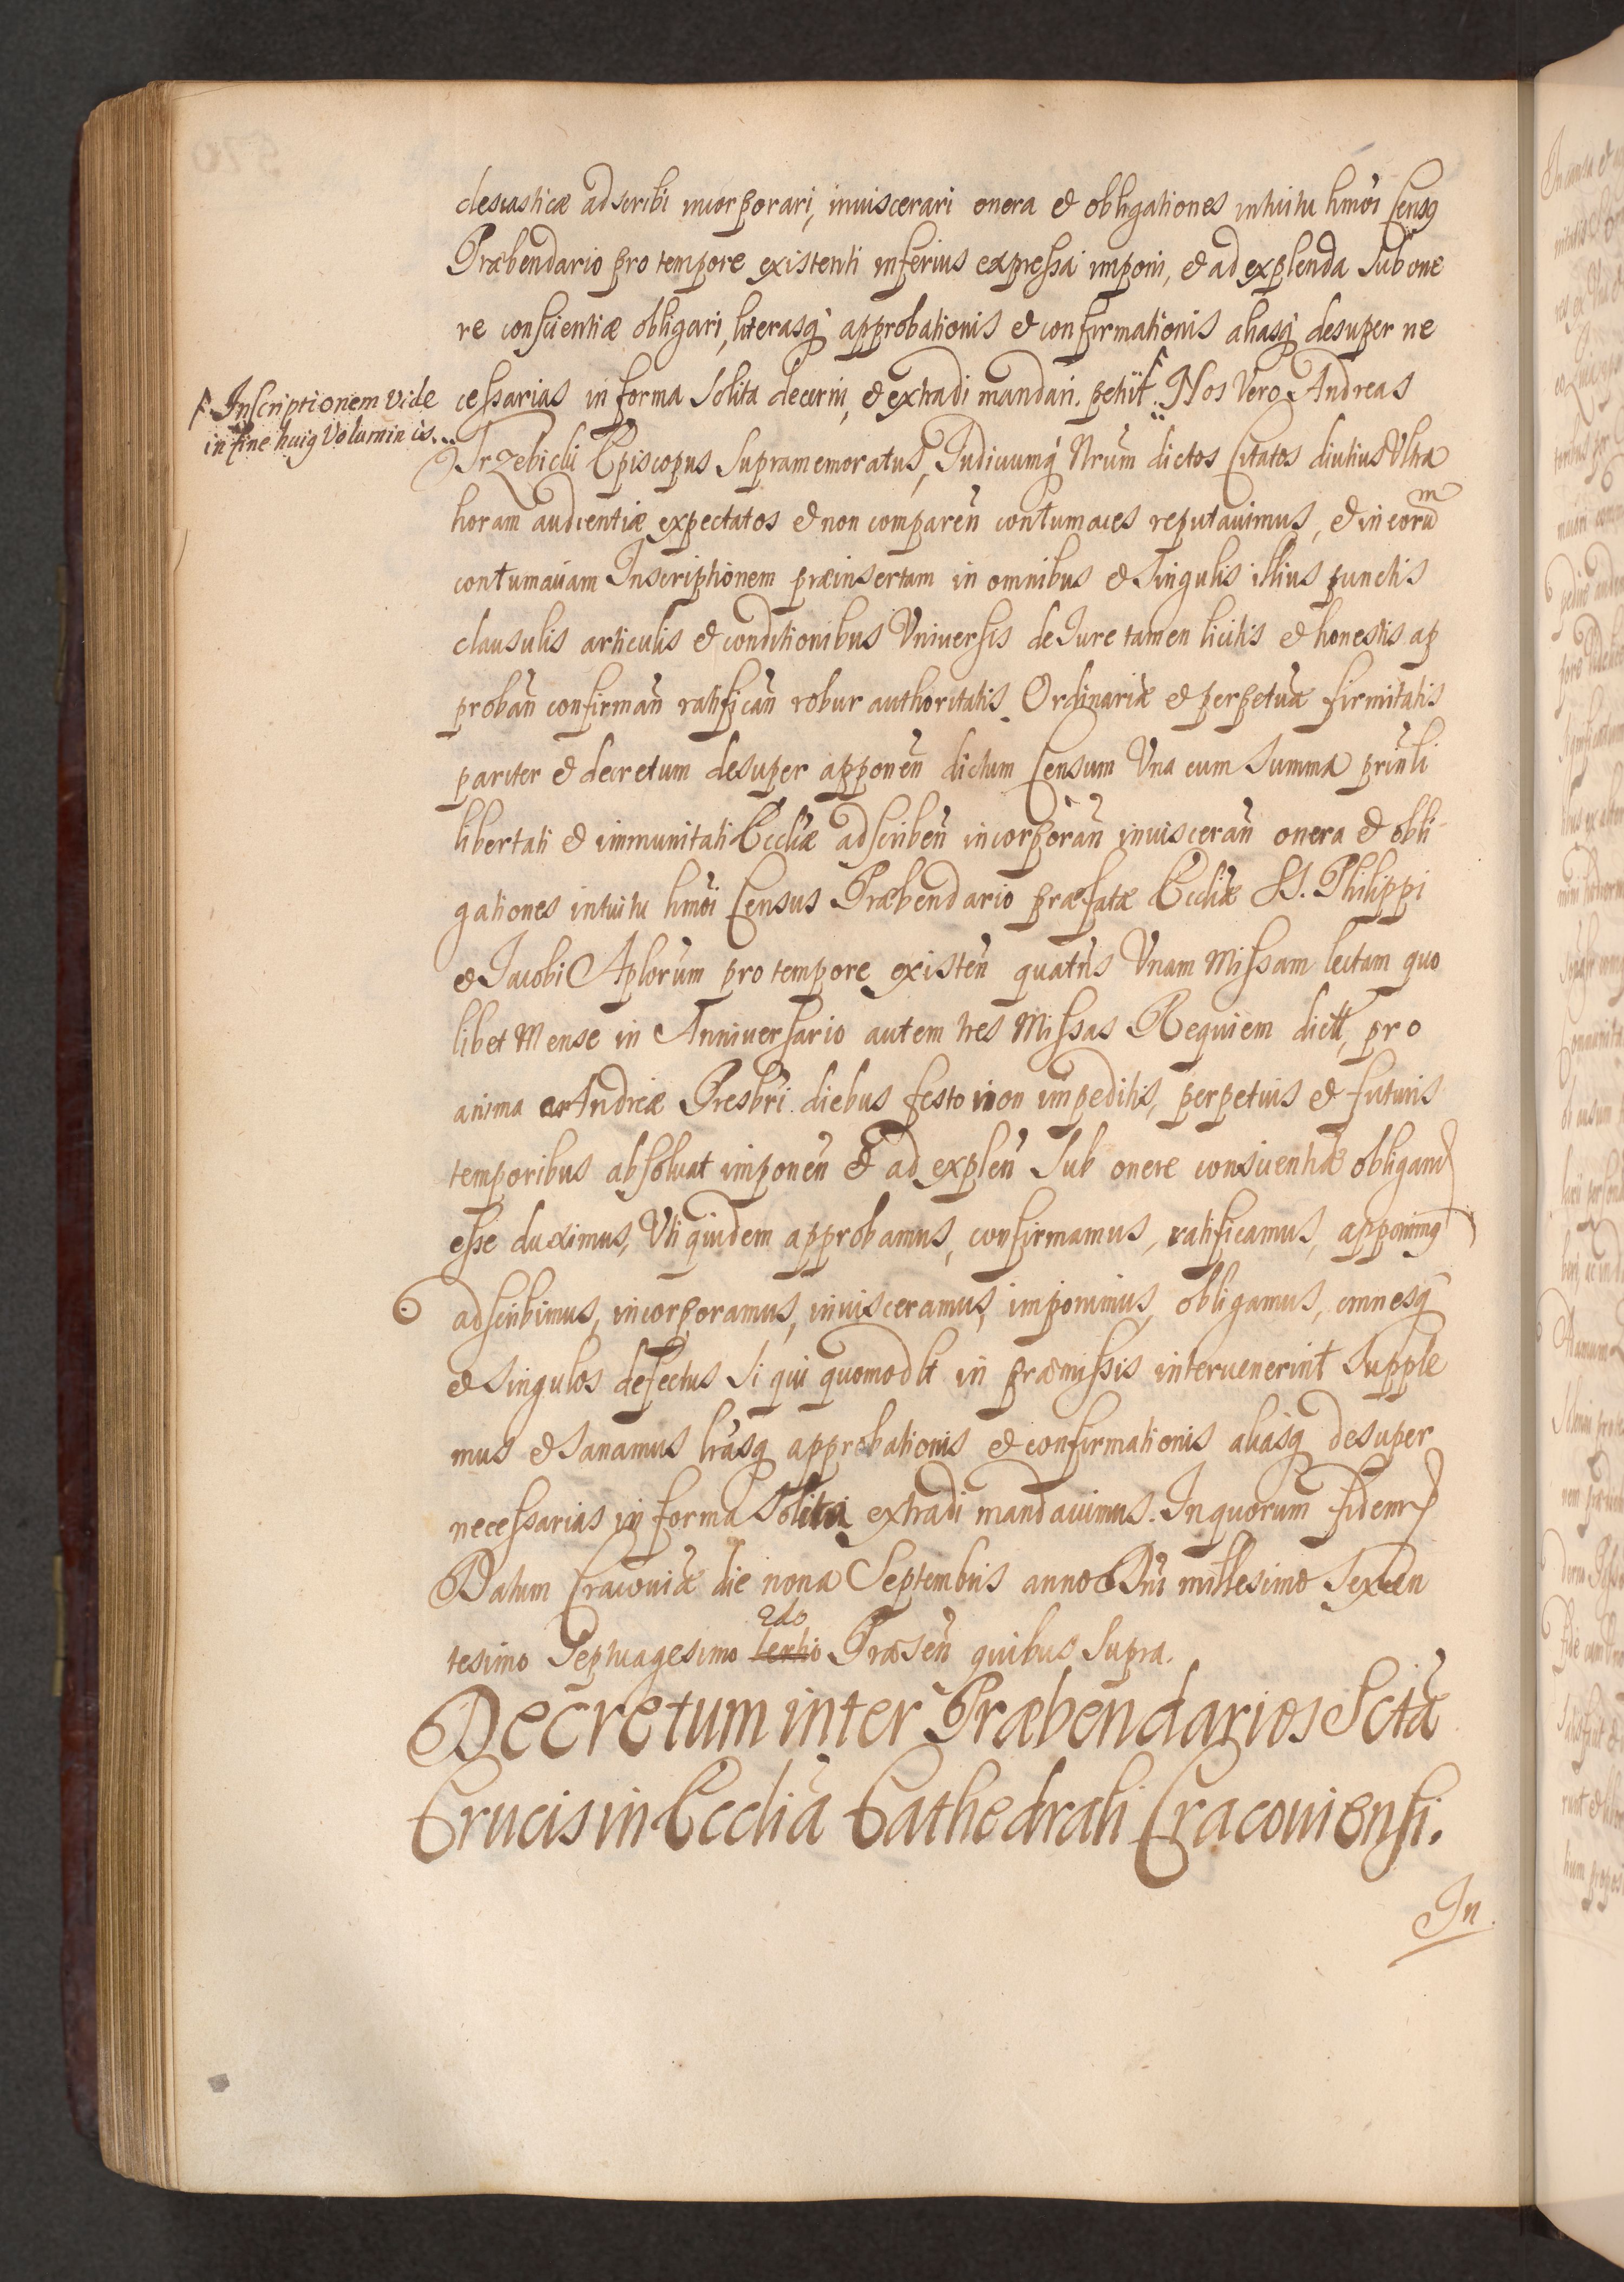 clesiasticæ adscribi incorporari, inviscerari onera et obligationes intuitu hmõi Censq
Præbendario pro tempore existenti inferius expressa imponi, et ad explenda sub one
re conscientiæ obligari, literasq́ approbationis et confirmationis aliasq́ desuper ne
cessarias in forma solita decerni, et extradi mandari. petÿt. Nos Vero Andreas
F. Inscriptionem vide
in fine huig Voluminis...
Trzebicki Episcopus supramemoratus, Iudiciumq́ Nrũm dictos Citatos diutius Ultra
horam audientiæ expectatos et non compareñ contumaces reputavimus, et in eorum
contumaciam Inscriptionem præinsertam in omnibus et singulis illius punctis
clausulis articulis et conditionibus Universis de Iure tamen licitis et honestis ap
probañ confirmañ ratificañ robur authoritatis Ordinariæ et perpetuæ firmitatis
pariter et decretum desuper apponeñ dictum Censum Una cum summa prinľi
libertati et immunitati Eccliæ adscribeñ incorporañ inviscerañ onera et obli-
gationes intuitu hmõi Census Præbendario præfatæ Eccliæ SS. Philippi
et Iacobi Aplorum pro tempore existeñ quatñs Unam Missam lectam quo
libet Mense in Anniversario autem tres Missas Requiem dictt, pro
anima Andreæ Presbri diebus festo non impeditis, perpetuis et futuris
temporibus absolvat imponeñ et ad expleñ sub onere conscientiæ obligand
esse duximus, Uti quidem approbamus, confirmamus, ratificamus, apponimq
adscribimus, incorporamus, invisceramus, imponimus, obligamus, omnesq́
et singulos defectus si qui quomodlt in præmissis intervenerint supple
mus et sanamus lrasq́ approbationis et confirmationis aliasq́ desuper
necessarias in forma solita extradi mandavimus. In quorum fidem
Datum Cracoviæ die nona Septembris anno Dñi millesimo sexcen
tesimo septuagesimo tertio 2do Præseñ quibus supra.
Decretum inter Præbendarios Sctæ
Crucis in Ecclia Cathedrali Cracoviensi.
In